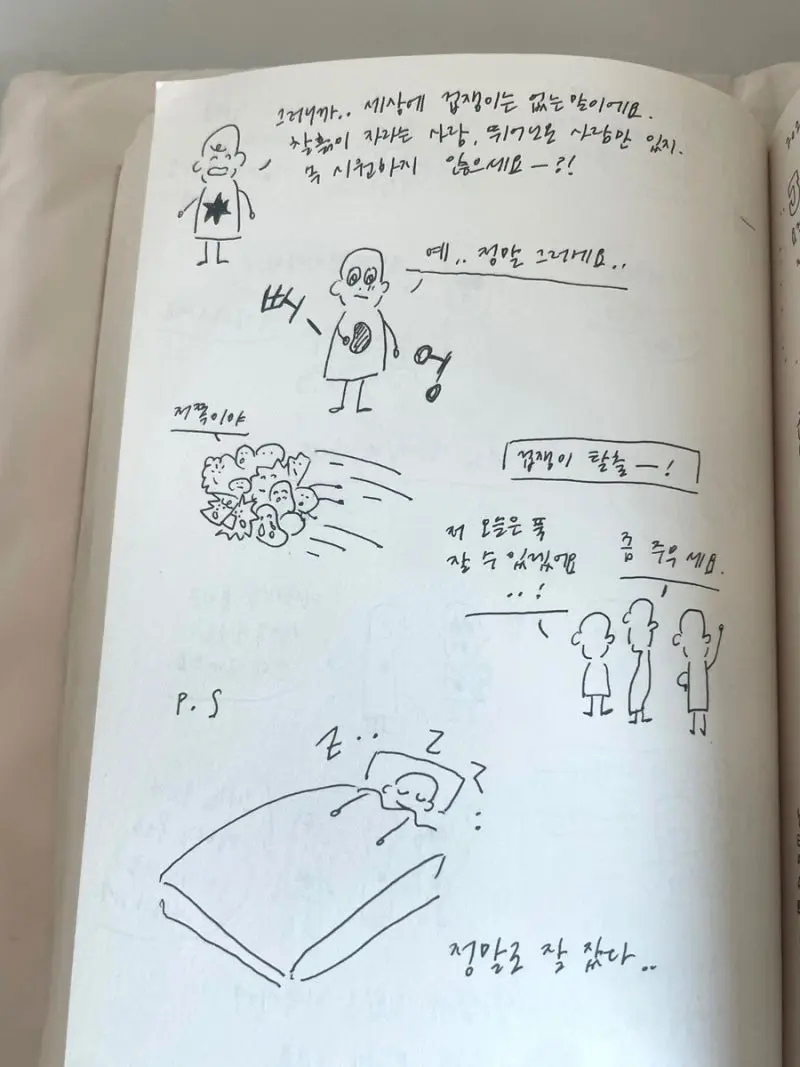 그러니까.. 세상에 겁쟁이는 없는 말이에요.
찰흙이 자라는 사람, 사람만 있지.
시원하지 않으세요ㅡ?!
예.. 정말 그러네요..
뻐
엉
저쪽이야
겁쟁이 탈출ㅡ!
저 오늘은 푹
잘 수 있겠어요
..!
P.S
Z.. Z Z
정말로 잘 잤다..